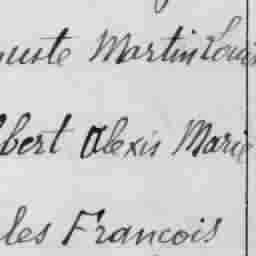 guste Martin Louis
lbert Alexis Marie
les François